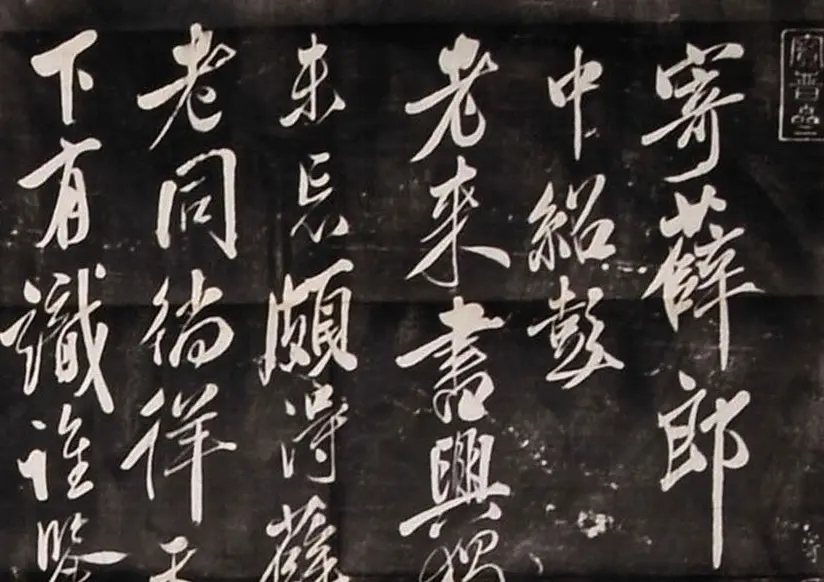 寄薛郎
中紹彭
老來書興
未忘頗得薛
老同徜徉天
下有識誰鑒